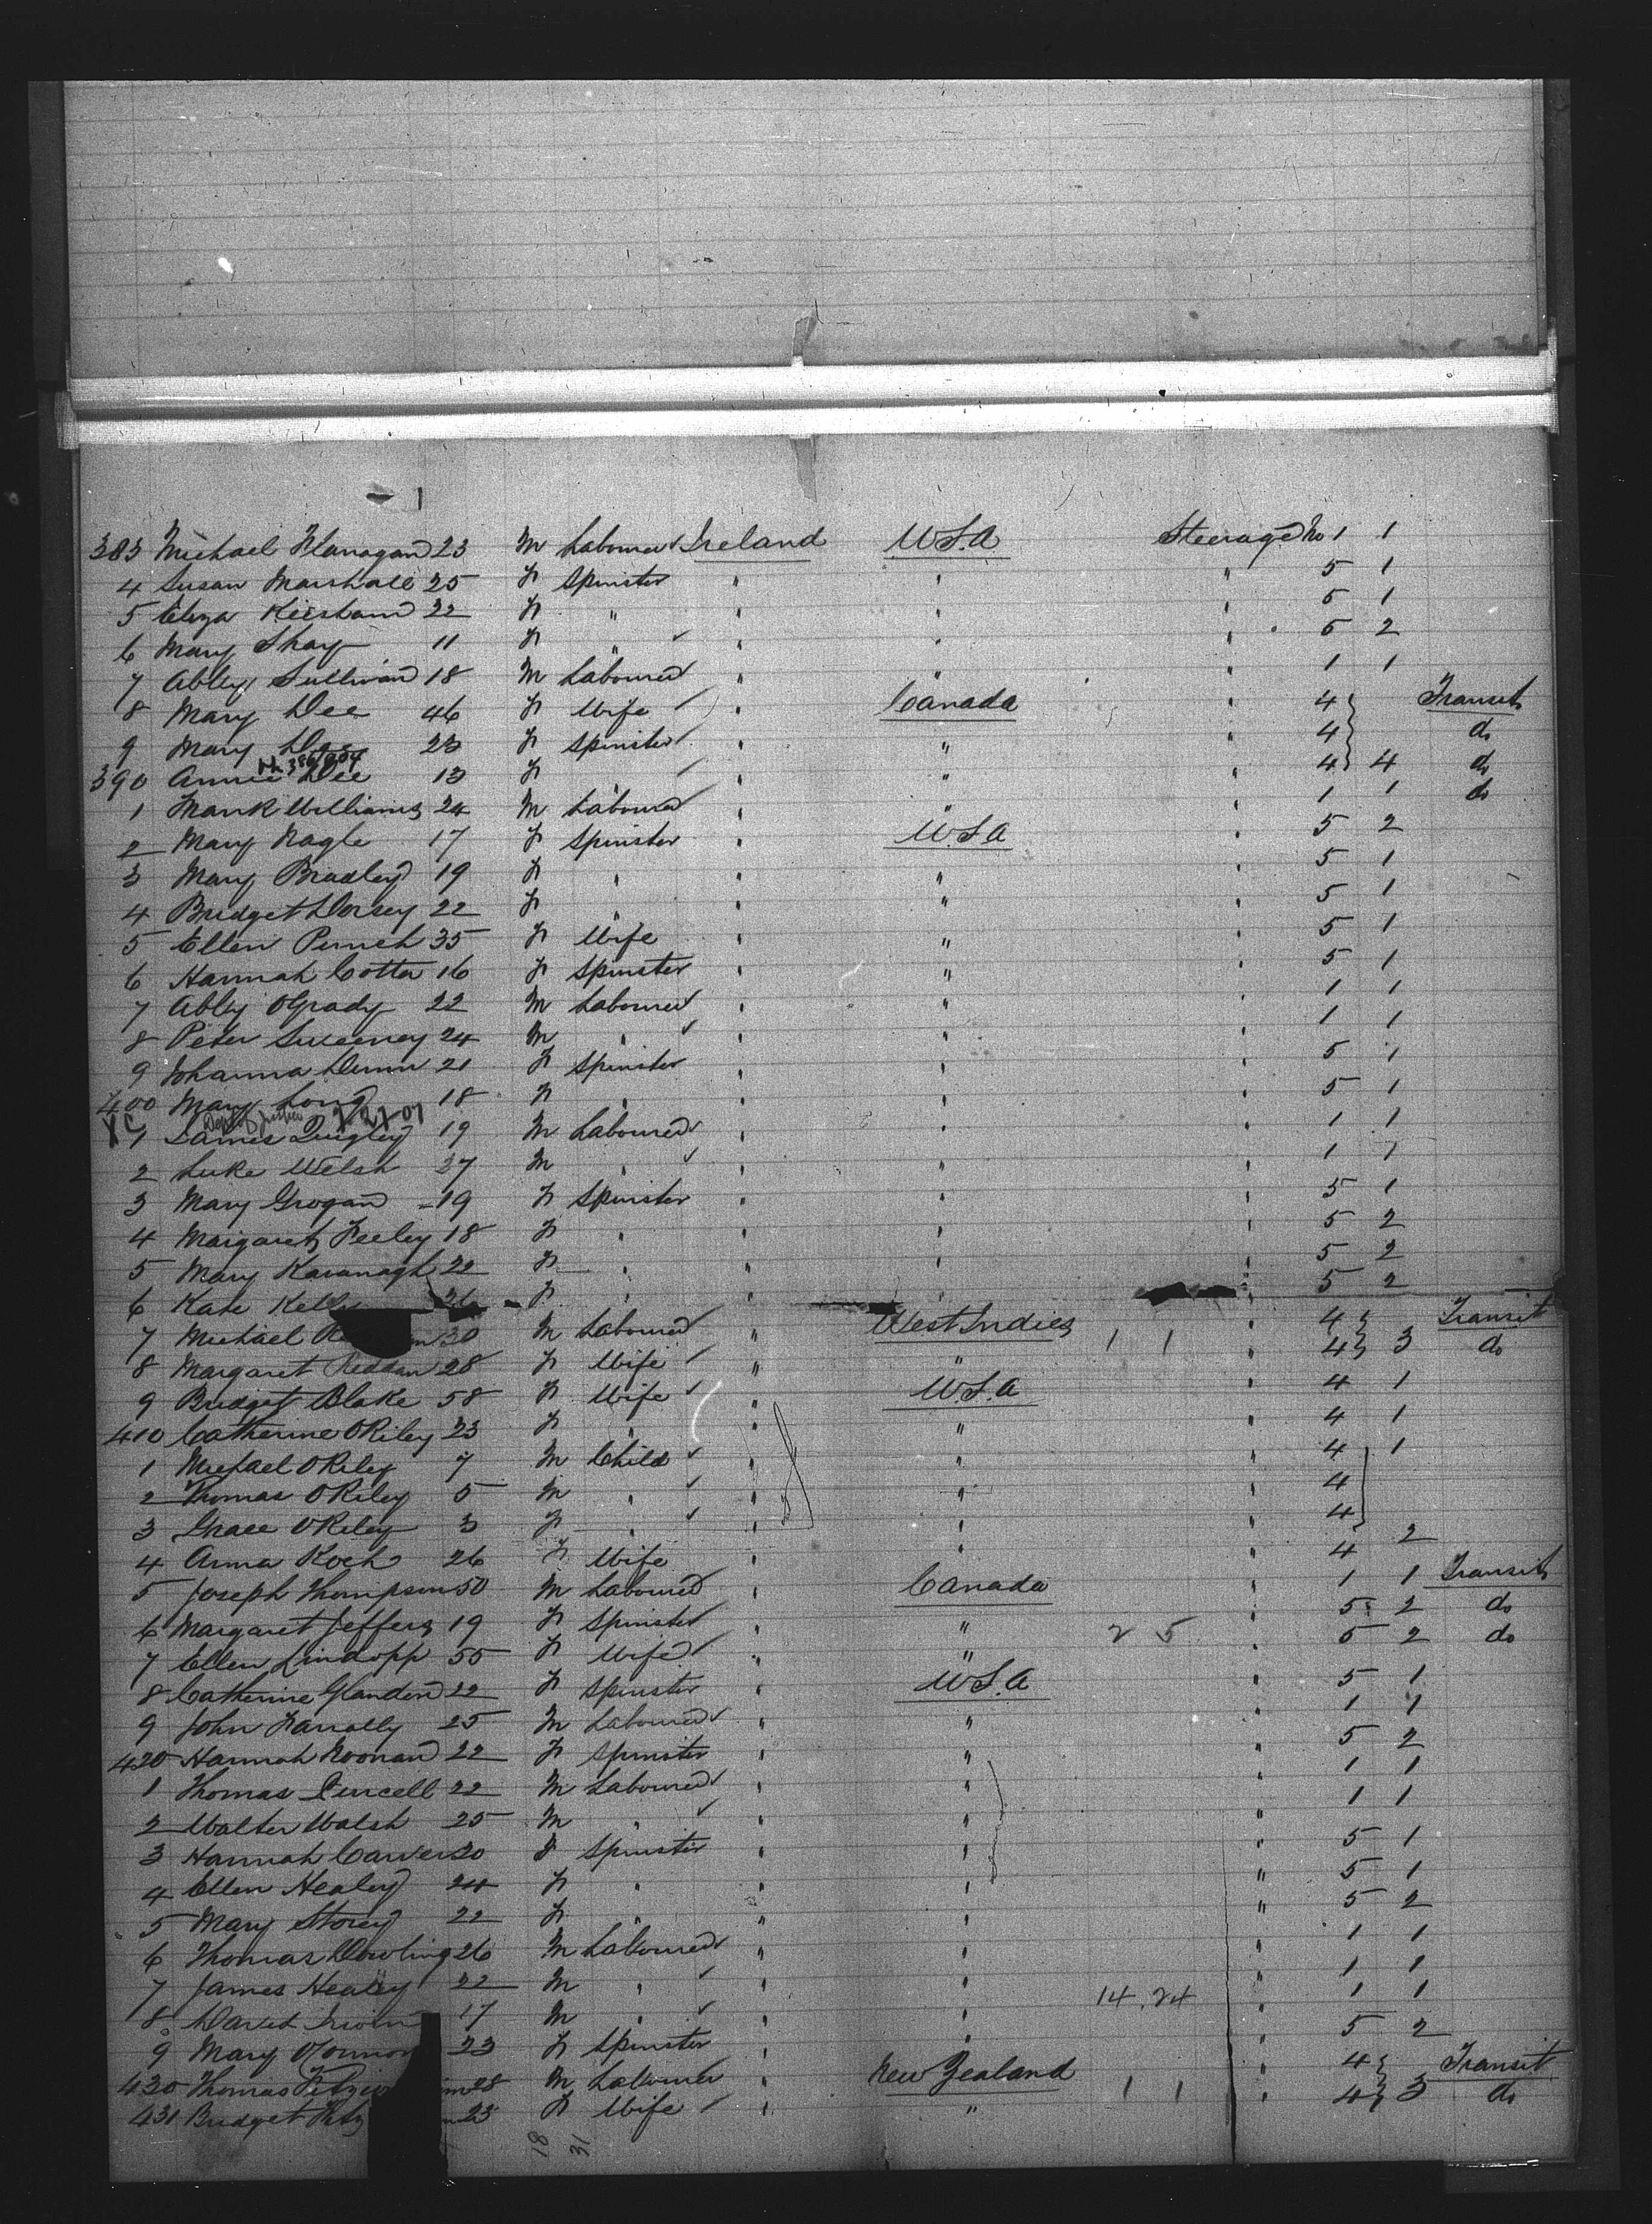 383 Michael Flanagan 23 M Labourer Ireland U.S.A Steerage No 1 1
4 Susan Marshall 25 F Spinster " " " 5 1
5 Eliza 22 F " " " " 5 1
6 Mary Shay 11 F " " " " 5 2
7 Abby Sullivan 18 M Labourer " " " 1 1
8 Mary Dee 46 F Wife " Canada " 4 Transit
9 Mary Dee 23 F Spinster " " " 4 do
390 Annie Dee 13 F " " " " 4 4 do
1 Frank Williams 24 M Labourer " " " 1 1 do
2 Mary Nagle 17 F Spinster " U.S.A " 5 2
3 Mary Bradley 19 F " " " " 5 1
4 Bridget Dorsey 22 F " " " " 5 1
5 Ellen Punch 35 F Wife " " " 5 1
6 Hannah Cotter 16 F Spinster " " " 5 1
7 Abby OGrady 22 M Labourer " " " 1 1
8 Peter Sweeney 24 M " " " " 1 1
9 Johanna Dunn 21 F Spinster " " " 5 1
400 Mary Long 18 F " " " " 5 1
1 James Quigley 19 M Labourer " " " 1 1
2 Luke Welsh 27 M " " " " 1 1
3 Mary Grogan 19 F Spinster " " " 5 1
4 Margaret Feeley 18 F " " " " 5 2
5 Mary Kavanagh 22 F " " " " 5 2
6 Kate Kelly 26 F " " " " 5 2
7 Michael 30 M Labourer " West Indies 1 1 " 4 Transit
8 Margaret Reddan 28 F Wife " " " 4 3 do
9 Bridget Blake 58 F Wife " U.S.A " 4 1
410 Catherine ORiley 23 F " " " " 4 1
1 Michael ORiley 7 M Child " " " 4 1
2 Thomas ORiley 5 M " " " " 4
3 Grace ORiley 3 F " " " " 4
4 Anna Koch 26 F Wife " " " 4 2
5 Joseph Thompson 50 M Labourer " Canada " 1 1 Transit
6 Margaret Jeffers 19 F Spinster " " 2 5 " 5 2 do
7 Ellen Lindopp 55 F Wife " " " 5 2 do
8 Catherine Glandon 22 F Spinster " U.S.A " 5 1
9 John Farrally 25 M Labourer " " " 1 1
420 Hannah Noonan 22 F Spinster " " " 5 2
1 Thomas Purcell 22 M Labourer " " " 1 1
2 Walter Walsh 25 M " " " " 1 1
3 Hannah Carver 20 F Spinster " " " 5 1
4 Ellen Healey 24 F " " " " 5 1
5 Mary Storey 22 F " " " " 5 2
6 Thomas Dowling 26 M Labourer " " " 1 1
7 James Healey 22 M " " " " 1 1
8 David 17 M " " " 14 24 " 1 1
9 Mary OConnor 23 F Spinster " " " 5 2
430 Thomas 28 M Labourer " New Zealand 1 1 " 4 Transit
431 Bridget 23 F Wife " " " 4 3 do
18 31